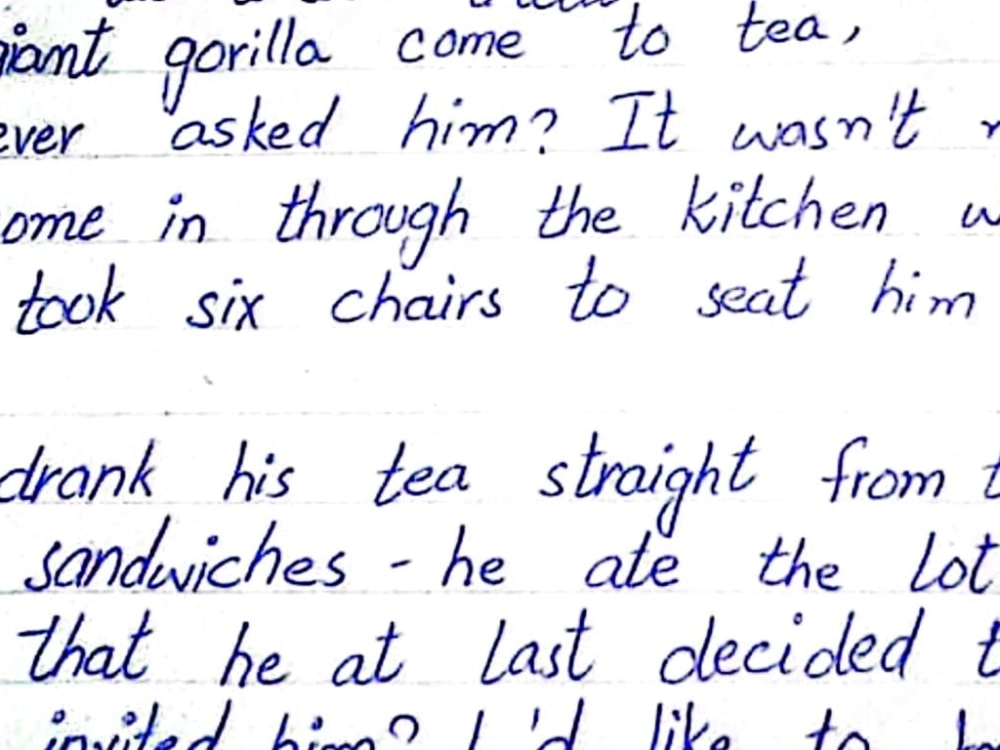 giant gorilla come to tea,
ever asked him? It wasn't
ome in through the kitchen
took six chairs to seat him
drank his tea straight from
sandwiches - he ate the lot
that he at last decided
invited him? I'd like to